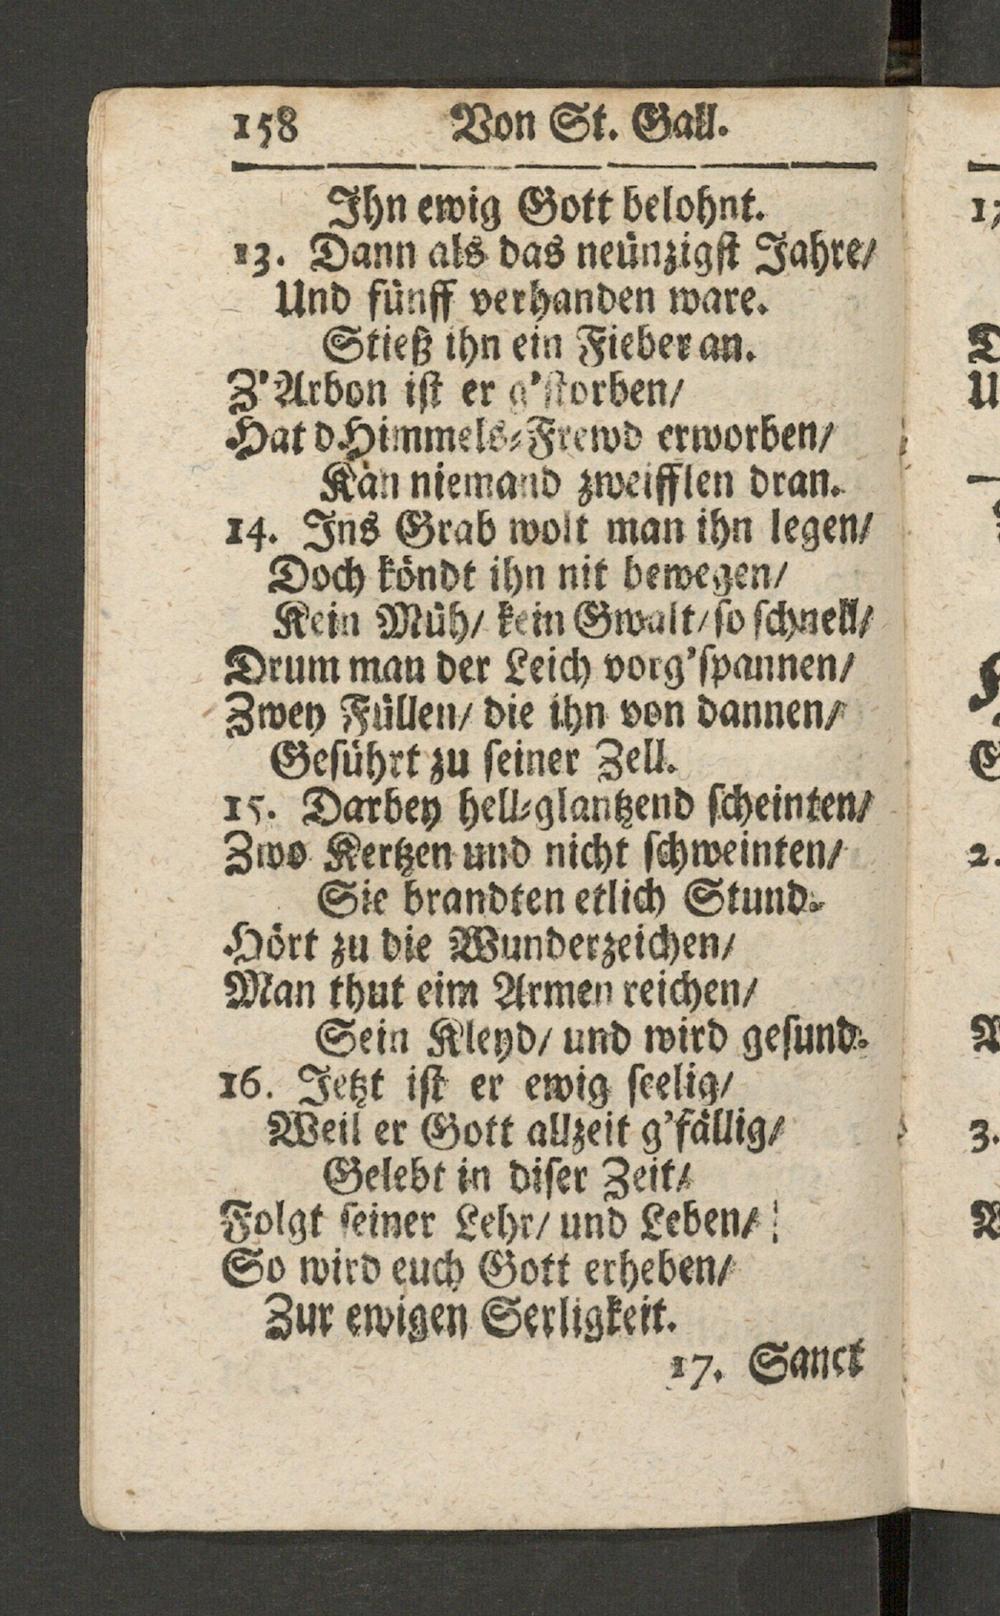 158 Von St. Gall.
Ihn ewig Gott belohnt.
13. Dann als das neünzigst Jahre/
Und fünff verhanden ware.
Stieß ihn ein Fieber an.
Z'Arbon ist er g'storben/
Hat d Himmels-Frewd erworben/
Kan niemand zweifflen dran.
14. Ins Grab wolt man ihn legen/
Doch köndt ihn nit bewegen/
Kein Müh/ kein Gwalt/ so schnell/
Drum man der Leich vorg'spannen/
Zwey Füllen/ die ihn von dannen/
Gesührt zu seiner Zell.
15. Darbey hell-glantzend scheinten/
Zwo Kertzen und nicht schweinten/
Sie brandten etlich Stund.
Hört zu die Wunderzeichen/
Man thut eim Armen reichen/
Sein Kleyd/ und wird gesund.
16. Jetzt ist er ewig seelig/
Weil er Gott allzeit g'fällig/
Gelebt in diser Zeit/
Folgt seiner Lehr/ und Leben/
So wird euch Gott erheben/
Zur ewigen Serligkeit.
17. Sanct